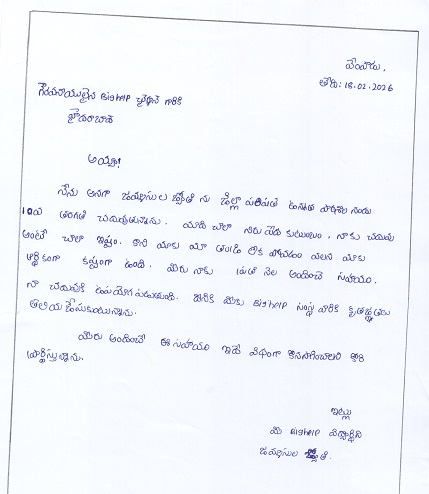 వేంపాడు.
తేది: 18.02.2026
గౌరవనీయులైన BigHelp ఛైర్మన్ గారికి
హైదరాబాద్
అయ్యా!
నేను అనగా జమ్మాసుల జ్యోతి ను జిల్లా పరిషత్ ఉన్నత పాఠశాల నందు
10వ తరగతి చదువుతున్నాను. మాది చాలా నిరు పేద కుటుంబం. నాకు చదువు
అంటే చాలా ఇష్టం. కాని మాకు మా తండ్రి లేక పోవడం వలన మాకు
ఆర్థికంగా కష్టంగా ఉంది. మీరు నాకు ప్రతి నెల అందించే సహాయం.
నా చదువుకి ఉపయోగ పడుతుంది. ఇందుకు మీకు BigHelp సంస్థ వారికి కృతజ్ఞతలు
తెలియ చేసుకుంటున్నాను.
మీరు అందించే ఈ సహాయం ఇదే విధంగా కొనసాగించాలని కోరి
ప్రార్థిస్తున్నాను.
ఇట్లు
మీ BigHelp విద్యార్థిని
జమ్మాసుల జ్యోతి.